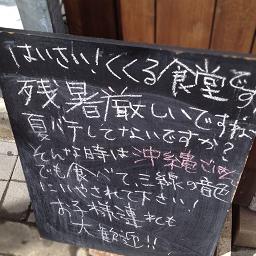 はいさい!くくる食堂です
残暑厳しいですね
夏バテしてないですか?
そんな時は沖縄そば
でも食べて、三線の音色
にいやされて下さい!
お子様連れも
大歓迎!!